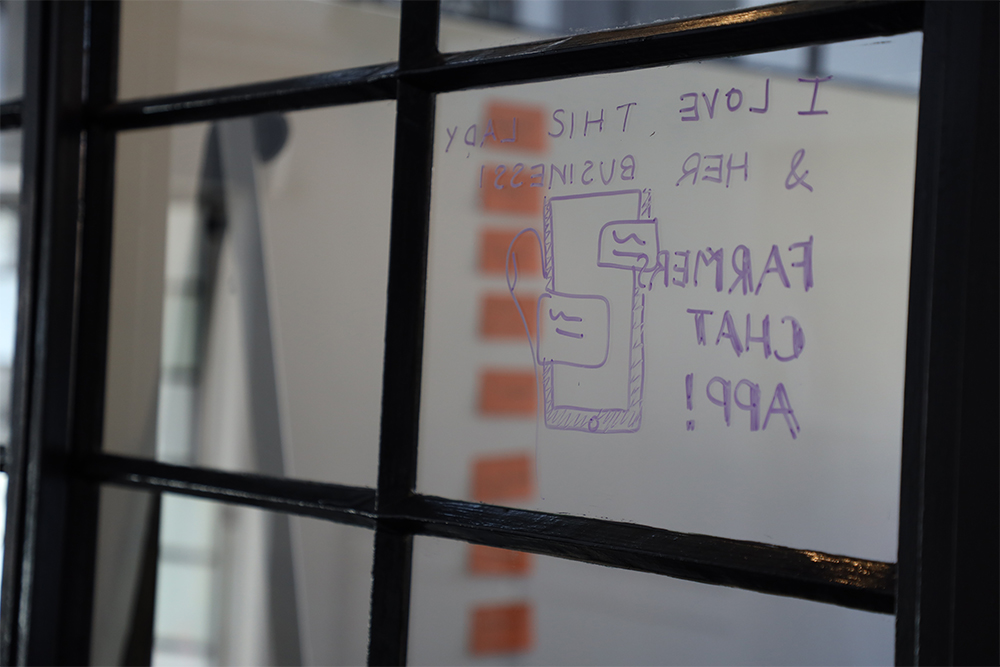 I LOVE THIS LADY
& HER BUSINESS!
FARMER
CHAT
APP!